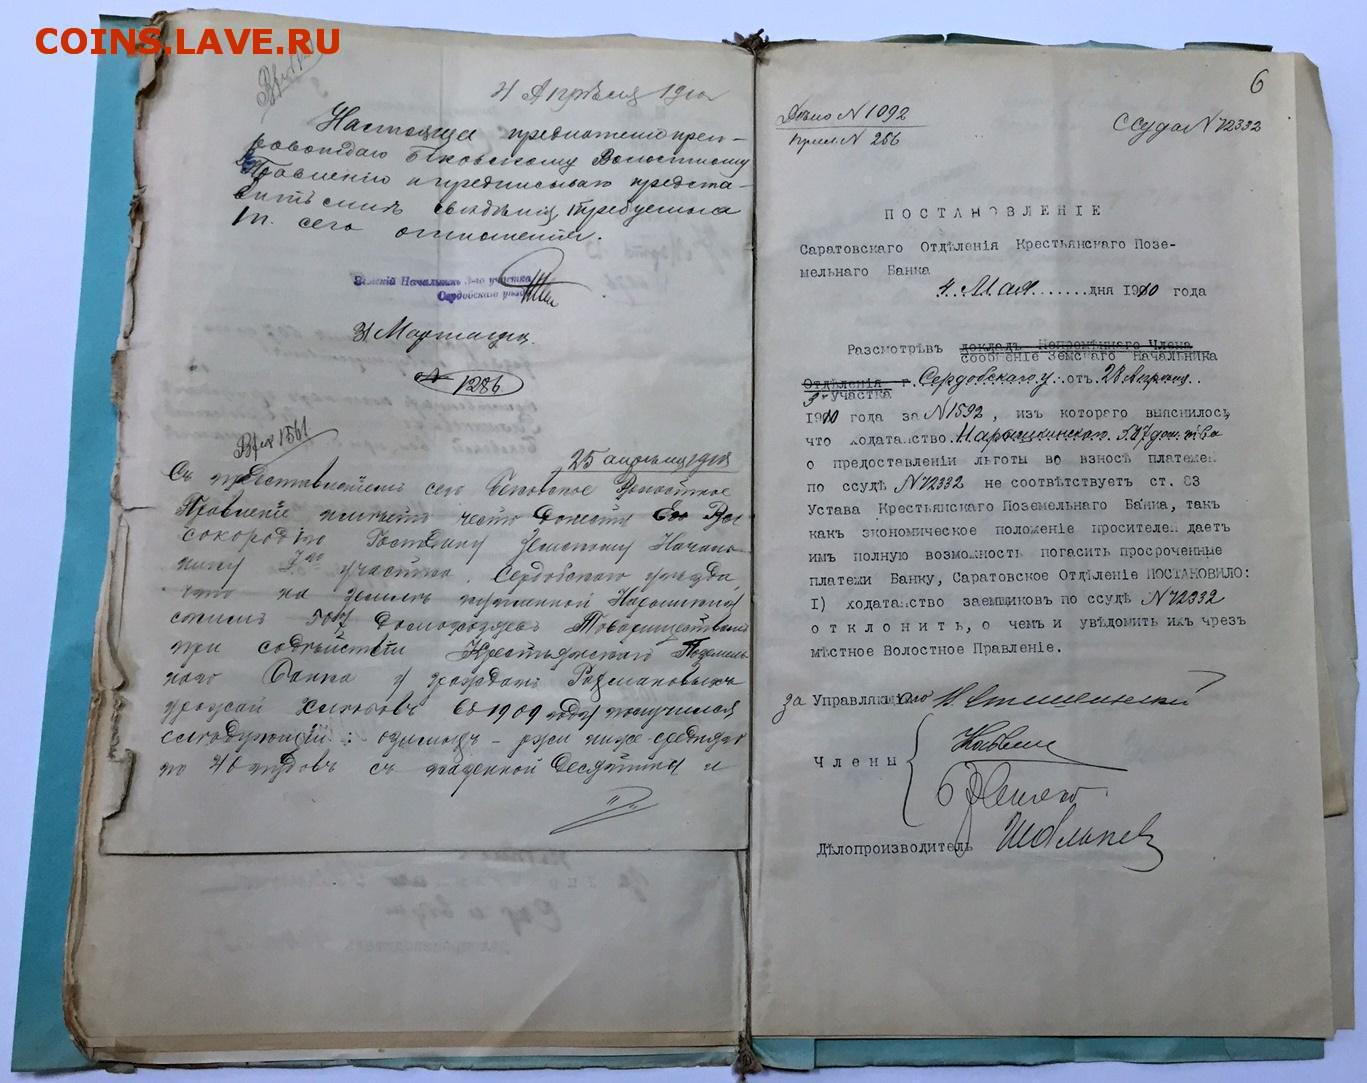 COINS.LAVE.RU
4 Апрѣля 1910
Настоящее препро-
вождаю Бековскому Волостному
Правленію и предписываю предста-
вить мнѣ свѣдѣнія, требуемыя
сего отношенія.
Земскій Начальникъ 3-го участка
Сердобскаго уѣзда
31 Марта
№ 1286
Вх 1561
25 апрѣля 1910
Съ представленіемъ сего Бековское Волостное
Правленіе имѣетъ честь донести Его Вы-
сокородію Господину Земскому Началь-
нику участка, Сердобскаго уѣзда,
что на землѣ купленной Нарышкин
скимъ домохозяевъ Товариществомъ
при содѣйствіи Крестьянскаго Поземель-
наго Банка у граждан
урожай хлѣбовъ въ 1909 году получился
слѣдующій: озимыхъ - ржи ниже средняго
по 40 пудовъ съ казенной десятины и
6
Дѣло N 1092
N 266
Ссуда N 72332
ПОСТАНОВЛЕНІЕ
Саратовскаго Отдѣленія Крестьянскаго Позе-
мельнаго Банка
4. Мая ...... дня 1910 года
Разсмотрѣвъ докладъ Непремѣннаго Члена
сообщеніе Земскаго Начальника
Отдѣленія г. Сердобскаго у. отъ 28 Апрѣля..
3 участка
1910 года за N 1592, изъ котораго выяснилось,
что ходатайство Нарышкинскаго тва
о предоставленіи льготы во взносѣ платежей
по ссудѣ N 72332 не соотвѣтствуетъ ст. 83
Устава Крестьянскаго Поземельнаго Банка, такъ
какъ экономическое положеніе просителей даетъ
имъ полную возможность погасить просроченные
платежи Банку, Саратовское Отдѣленіе ПОСТАНОВИЛО:
I) ходатайство заемщиковъ по ссудѣ N 72332
отклонить, о чемъ и увѣдомить ихъ чрезъ
мѣстное Волостное Правленіе.
за Управляющаго
Члены
Дѣлопроизводитель